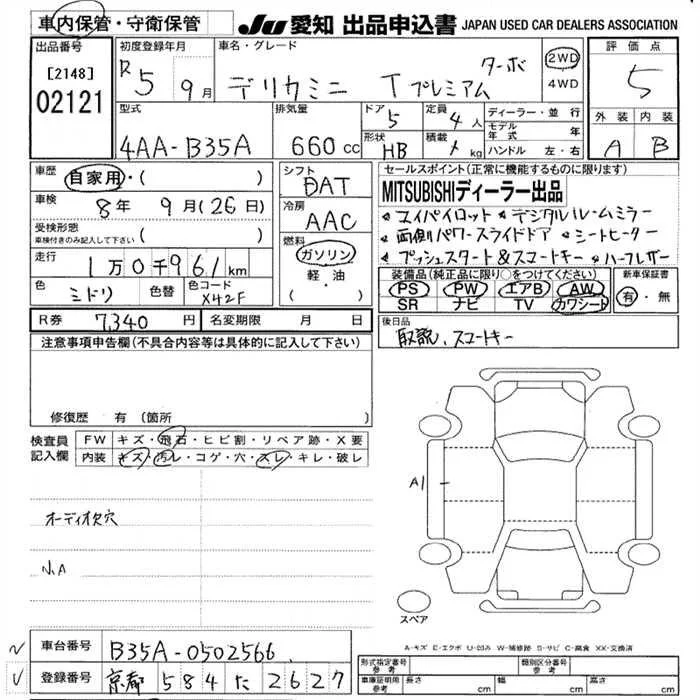 車内保管・守衛保管 JU 愛知 出品申込書 JAPAN USED CAR DEALERS ASSOCIATION
出品番号 初度登録年月 車名・グレード 評価点
[2148] R5年9月 デリカミニ Tプレミアム ターボ 2WD 5
02121 4WD
型式 排気量 ドア 5 定員 4人 ディーラー・並行 外装 内装
4AA-B35A 660cc 形状 HB 積載 kg モデル年式 年 A B
ハンドル 左・右
車歴 自家用・( ) シフト DAT セールスポイント(正常に機能するものに限ります)
車検 8年 9月(26日) 冷房 AAC MITSUBISHIディーラー出品
受検形態 ( ) マイパイロット デジタルルームミラー
車検付きのみ記入して下さい 燃料 両側パワースライドドア シートヒーター
走行 1万0千961km ガソリン プッシュスタート&スマートキー ハーフレザー
色 ミドリ 色替 色コード X42F 軽・油 装備品(純正品に限り○をつけてください) 新車保証書
PS PW エアB AW 有・無
SR ナビ TV カワシート
R券 7,340円 名変期限 月 日 後日品
注意事項申告欄(不具合内容等は具体的に記入して下さい) 取説、スマートキー
修復歴 有(箇所
検査員 FW キズ・飛石・ヒビ割・リペア跡・X要
記入欄 内装 キズ・汚レ・コゲ・穴・スレ・キレ・破レ
A1
オーディオ欠穴
N.A
スペア
A-キズ E-エクボ U-凹み W-補修跡 S-サビ C-腐食 XX-交換済
車台番号 B35A-0502566
登録番号 京都 584 た 2627
型式指定番号 参考 類別区分番号 参考
車庫証明用 参考 長さ cm 幅 cm 高さ cm